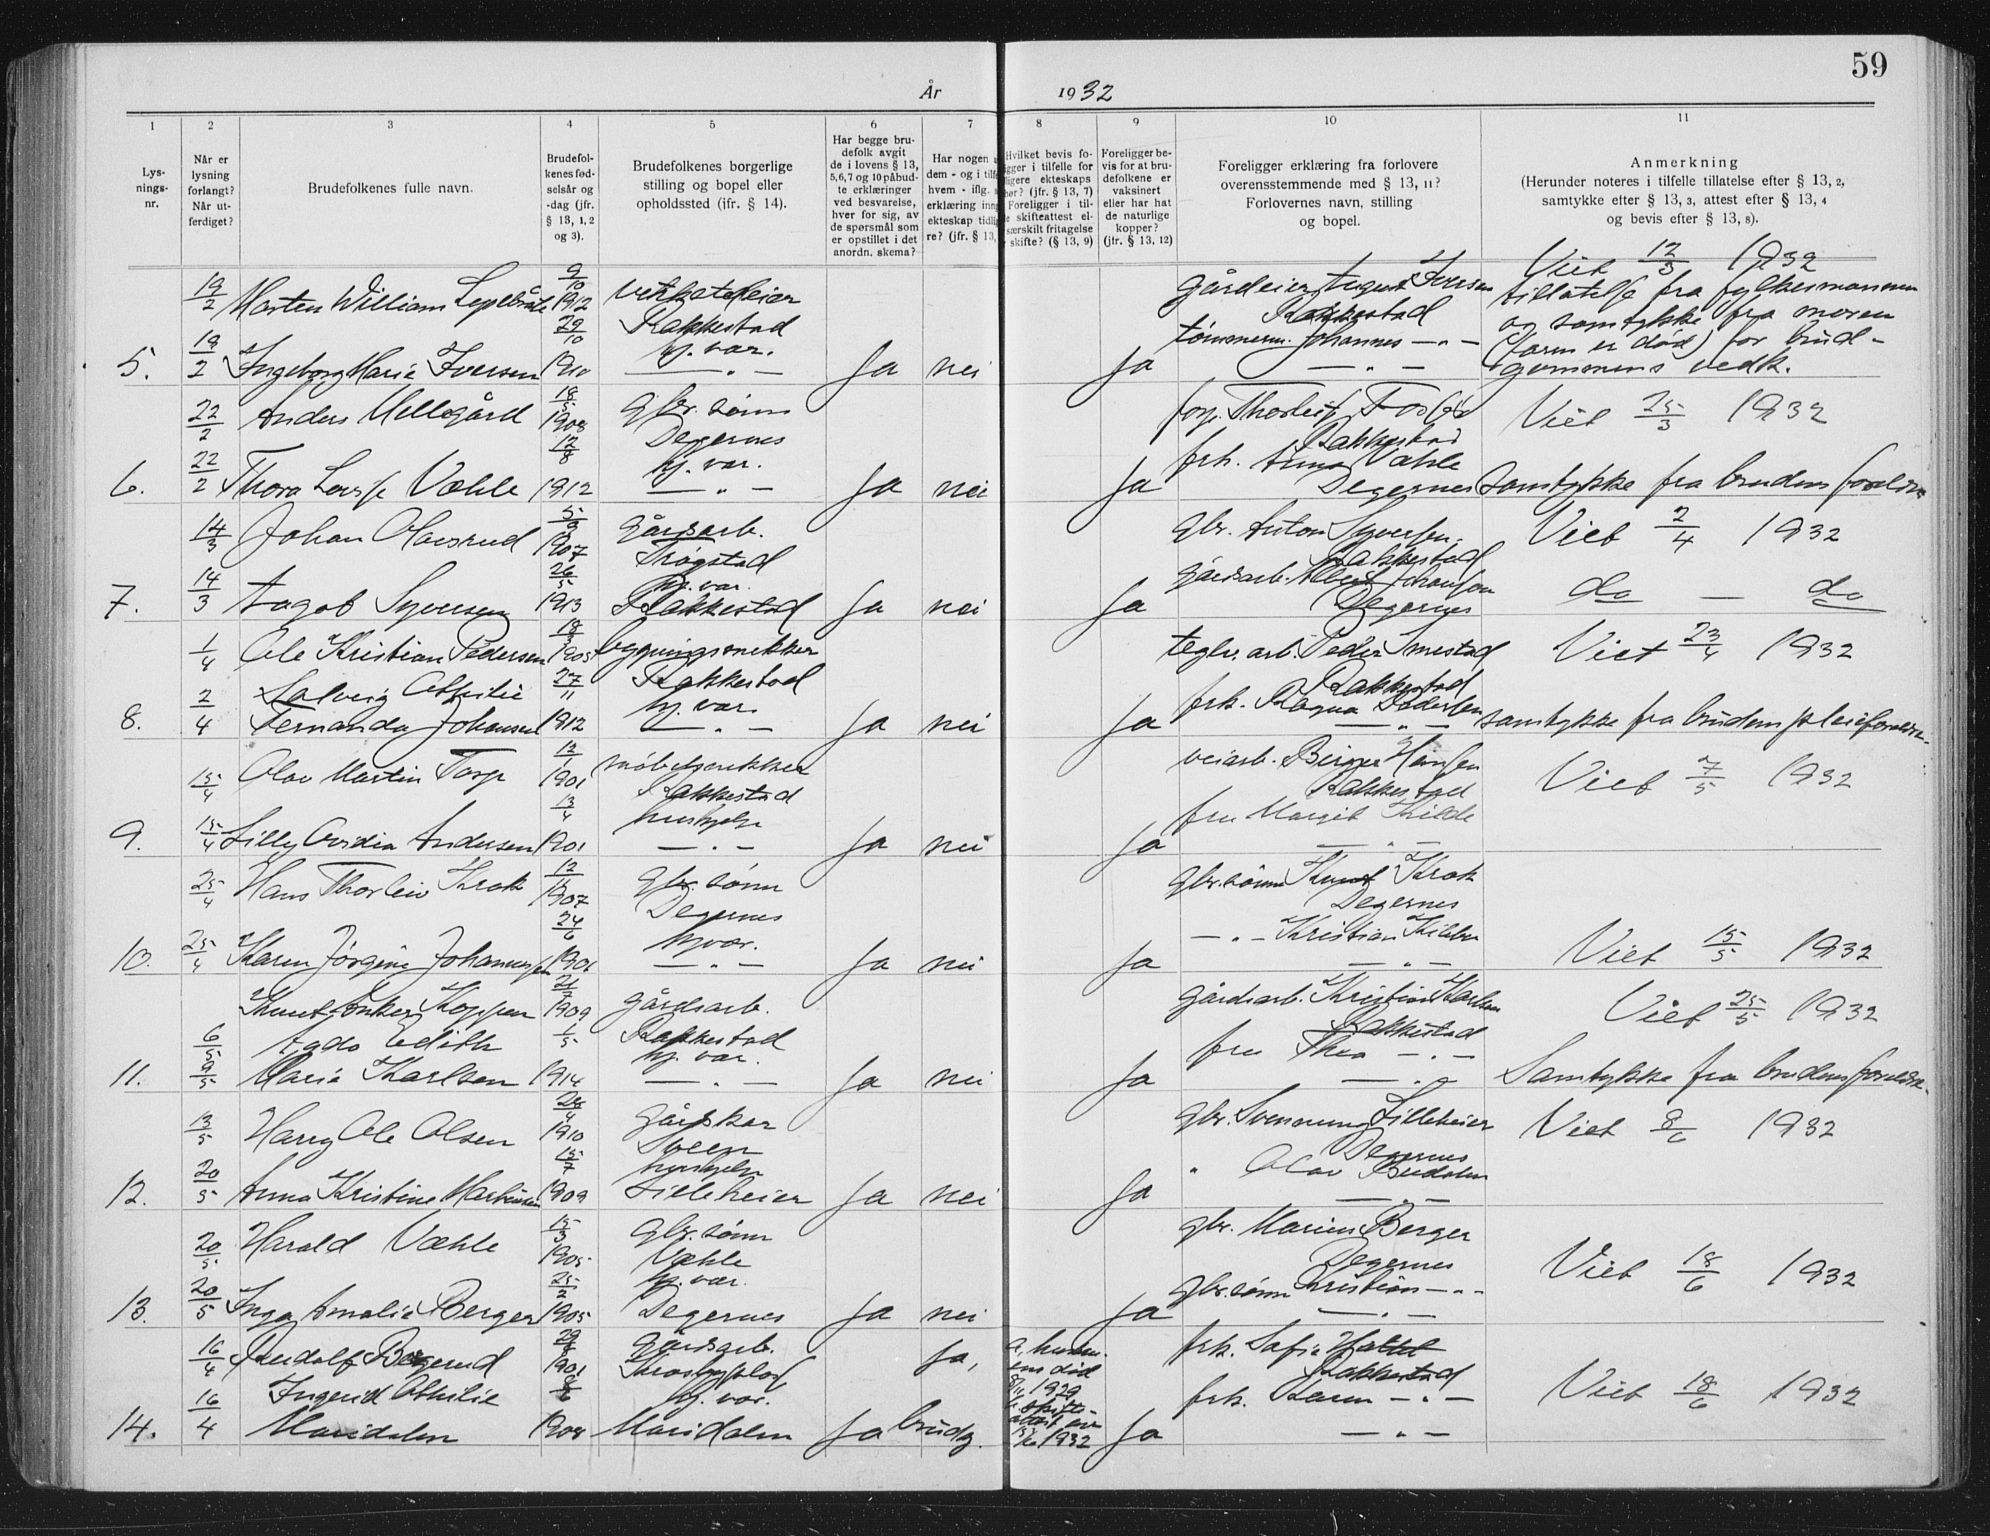 59
År 1932
1 2 3 4 5 6 7 8 9 10 11
Lys-
nings-
nr.
Når er
lysning
forlangt?
Når ut-
ferdiget?
Brudefolkenes fulle navn.
Brudefol-
kenes fød-
selsår og
-dag (jfr.
§ 13, 1, 2
og 3).
Brudefolkenes borgerlige
stilling og bopel eller
opholdssted (ifr. § 14).
Har begge bru-
defolk avgit
de i lovens § 13,
5,6,7 og 10 påbud-
te erklæringer
ved besvarelse,
hver for sig, av
de spørsmål som
er opstillet i det
anordn. skema?
Har nogen a
dem - og i tilf
hvem - iflg. s
erklæring inng
ekteskap tidlig
re? (jfr. § 13,
Hvilket bevis fo-
gger i tilfelle for
ligere ekteskaps
hør? (jfr. § 13, 7)
Foreligger i til-
le skifteattest el-
særskilt fritagelse
skifte? (§ 13, 9)
Foreligger be-
vis for at bru-
defolkene er
vaksinert
eller har hat
de naturlige
kopper?
(jfr. § 13, 12)
Foreligger erklæring fra forlovere
overensstemmende med § 13, 11?
Forlovernes navn, stilling
og bopel.
Anmerkning
(Herunder noteres i tilfelle tillatelse efter § 13, 2,
samtykke efter § 13, 3, attest efter § 13, 4
og bevis efter § 13, 8).
19/2 Marten William 9/10 1912
Rakkestad
5. 19/2 Ingeborg Marie Iversen 29/10 1910 hj. vær. — " — Ja nei Ja
gårdeier August Iversen
Rakkestad
tømmerm. Johannes — " —
— " —
Viet 12/3 1932
tillatelse fra fylkesmannen
og samtykke fra moren
(faren er død) for brud-
gommens vedk.
22/2 Anders Mellegård 18/5 1908 gbr. sønn
Degernes
6. 22/2 Thora Lovise Væhle 12/8 1912 hj. vær. — " — Ja nei Ja
Thorleif
Rakkestad
frk. Anna Væhle
Degernes
Viet 25/3 1932
Samtykke fra brudens foreldre
14/3 Johan Olavsrud 5/9 1907 gårdsarb.
Trøgstad
7. 14/3 Aagot Syversen 26/5 1913 hj. vær.
Rakkestad Ja nei Ja
gbr. Anton Syversen
Rakkestad
gårdsarb. Johansen
Degernes
Viet 2/4 1932
do — do
1/4 Ole Kristian Pedersen 18/3 1905 bygningssnekker
Rakkestad
8. 2/4 Solveig Othilie
Fernanda Johansen 27/11 1912 hj. vær. — " — Ja nei Ja
teglv. arb. Peder Smestad
Rakkestad
frk. Ragna Pedersen
— " —
Viet 23/4 1932
samtykke fra brudens pleieforeldre.
15/4 Olav Martin Torp 12/1 1901 møbelsnekker
Rakkestad
9. 15/4 Lilly Ovidia Andersen 13/4 1901 hushjelp — " — Ja nei Ja
veiarb. Birger Hansen
Rakkestad
fru Margit Kilde
— " —
Viet 7/5 1932
25/4 Hans Thorleiv Krok 12/11 1907 gbr. sønn
Degernes
10. 25/4 Karen Jørgine Johannessen 24/6 hj. vær. — " — Ja nei Ja
gbr. sønn Knut Krok
Degernes
— " — Kristian
— " —
Viet 15/5 1932
Knut Anker Koppen 1909 gårdsarb.
Rakkestad
11. 6/5 9/5 Agda Edith
Marie Karlsen 1/5 1914 hj. vær. — " — Ja nei Ja
gårdsarb. Kristian Karlsen
Rakkestad
fru Thea — " —
— " —
Viet 25/5 1932
Samtykke fra brudens foreldre.
13/5 Harry Ole Olsen 1910 gårdskar
Sveen
12. 20/5 Anna Kristine Martinsen 15/7 1909 hushjelp
Lilleheier Ja nei Ja
gbr. Svennung Lilleheier
Degernes
" Olav Budalen
— " —
Viet 8/6 1932
20/5 Harald Væhle 15/3 1905 gbr. sønn
Væhle
13. 20/5 Inga Amalie Berger 25/2 1905 hj. vær.
Degernes Ja nei Ja
gbr. Marius Berger
Degernes
gbr. sønn Kristian — " —
— " —
Viet 18/6 1932
16/4 Rudolf 1901 gårdsarb.
14. 16/4 Ingerid Othilie
Maridalen 8/6 1908 hj. vær.
Maridalen Ja Ja,
brudg.
død
1929
b. skifte-
attest
1932
Ja
frk. Sofie
Rakkestad
frk. Karen — " —
— " —
Viet 18/6 1932